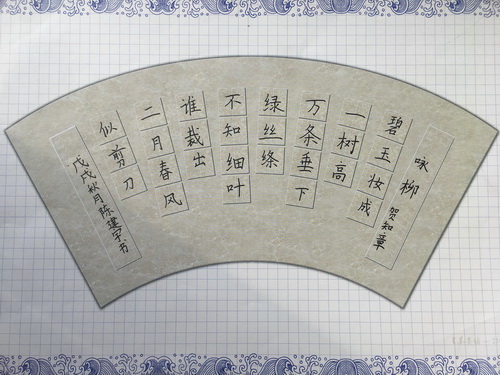 咏柳
贺知章
碧玉妆成
一树高
万条垂下
绿丝绦
不知细叶
谁裁出
二月春风
似剪刀
戊戌秋月陈建字书